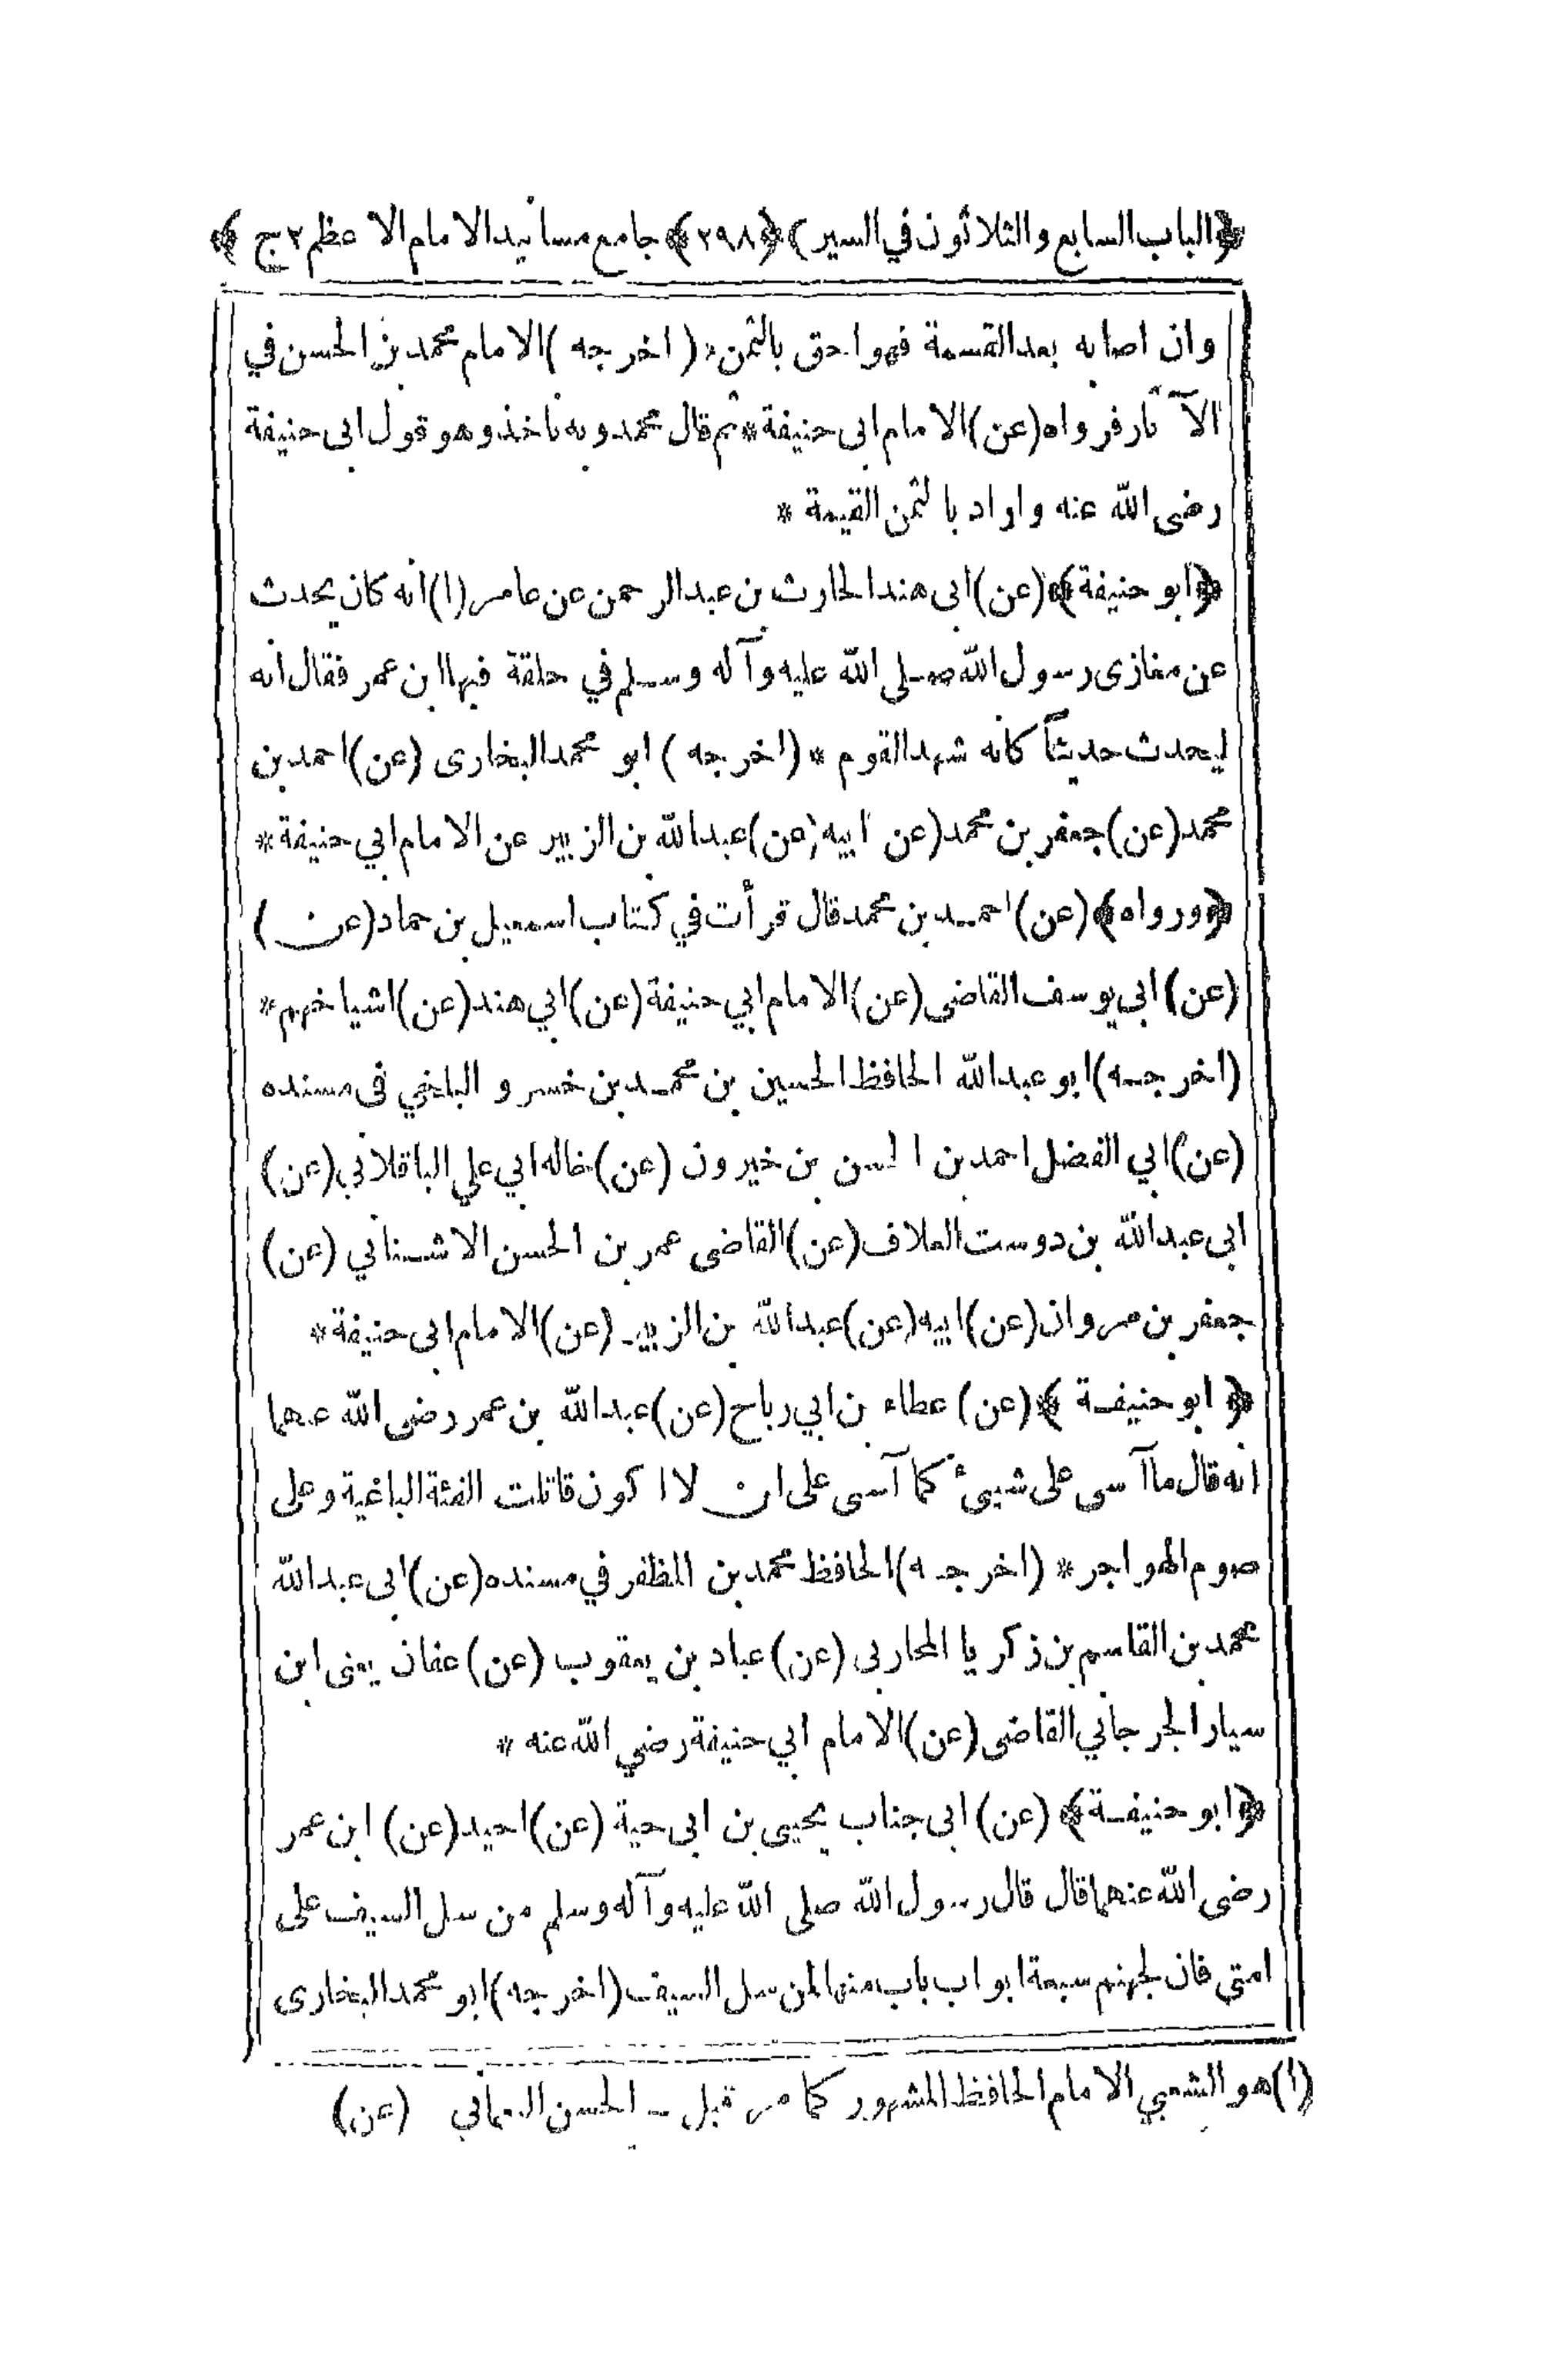 ﴿الباب السابع والثلاثون في السير﴾ ﴿٢٩٨﴾ جامع مسانيد الامام الاعظم ٢ج ﴾
وان اصابه بعد القسمة فهو احق بالثمن * (اخرجه) الامام محمد بن الحسن في
الآثار فرواه (عن) الامام ابى حنيفة * ثم قال محمد وبه ناخذ وهو قول ابى حنيفة
رضى الله عنه واراد بالثمن القيمة *
﴿ابو حنيفة﴾ (عن) ابى هند الحارث بن عبد الرحمن عن عامر (١) انه كان يحدث
عن مغازى رسول الله صلى الله عليه وآله وسلم في حلقة فيها ابن عمر فقال انه
ليحدث حديثاً كانه شهد القوم * (اخرجه) ابو محمد البخارى (عن) احمد بن
محمد (عن) جعفر بن محمد (عن ابيه (عن) عبد الله بن الزبير عن الامام ابي حنيفة *
﴿ورواه﴾ (عن) احمد بن محمد قال قرأت في كتاب اسمعيل بن حماد (عن)
(عن) ابى يوسف القاضى (عن) الامام ابي حنيفة (عن) ابي هند (عن) اشياخهم *
(اخرجه) ابو عبد الله الحافظ الحسين بن محمد بن خسرو البلخي فى مسنده
(عن) ابي الفضل احمد بن الحسن بن خيرون (عن) خاله ابي علي الباقلاني (عن)
ابى عبد الله بن دوست العلاف (عن) القاضى عمر بن الحسن الاشناني (عن)
جعفر بن مروان (عن) ابيه (عن) عبد الله بن الزبير (عن) الامام ابى حنيفة *
﴿ابو حنيفة﴾ (عن) عطاء بن ابي رباح (عن) عبد الله بن عمر رضى الله عنهما
انه قال ما آسى على شيئ كما آسى على ان لا اكون قاتلت الفئة الباغية وعلى
صوم الهواجر * (اخرجه) الحافظ محمد بن المظفر في مسنده (عن) ابى عبد الله
محمد بن القاسم بن زكريا المحاربى (عن) عباد بن يعقوب (عن) عفان يعنى ابن
سيار الجرجاني القاضى (عن) الامام ابي حنيفة رضي الله عنه *
﴿ابو حنيفة﴾ (عن) ابى جناب يحيى بن ابى حية (عن) احيد (عن) ابن عمر
رضى الله عنهما قال قال رسول الله صلى الله عليه وآله وسلم من سل السيف على
امتي فان لجهنم سبعة ابواب باب منها لمن سل السيف (اخرجه) ابو محمد البخارى
(١) هو الشعبي الامام الحافظ المشهور كما مر قبل - الحسن النعماني (عن)